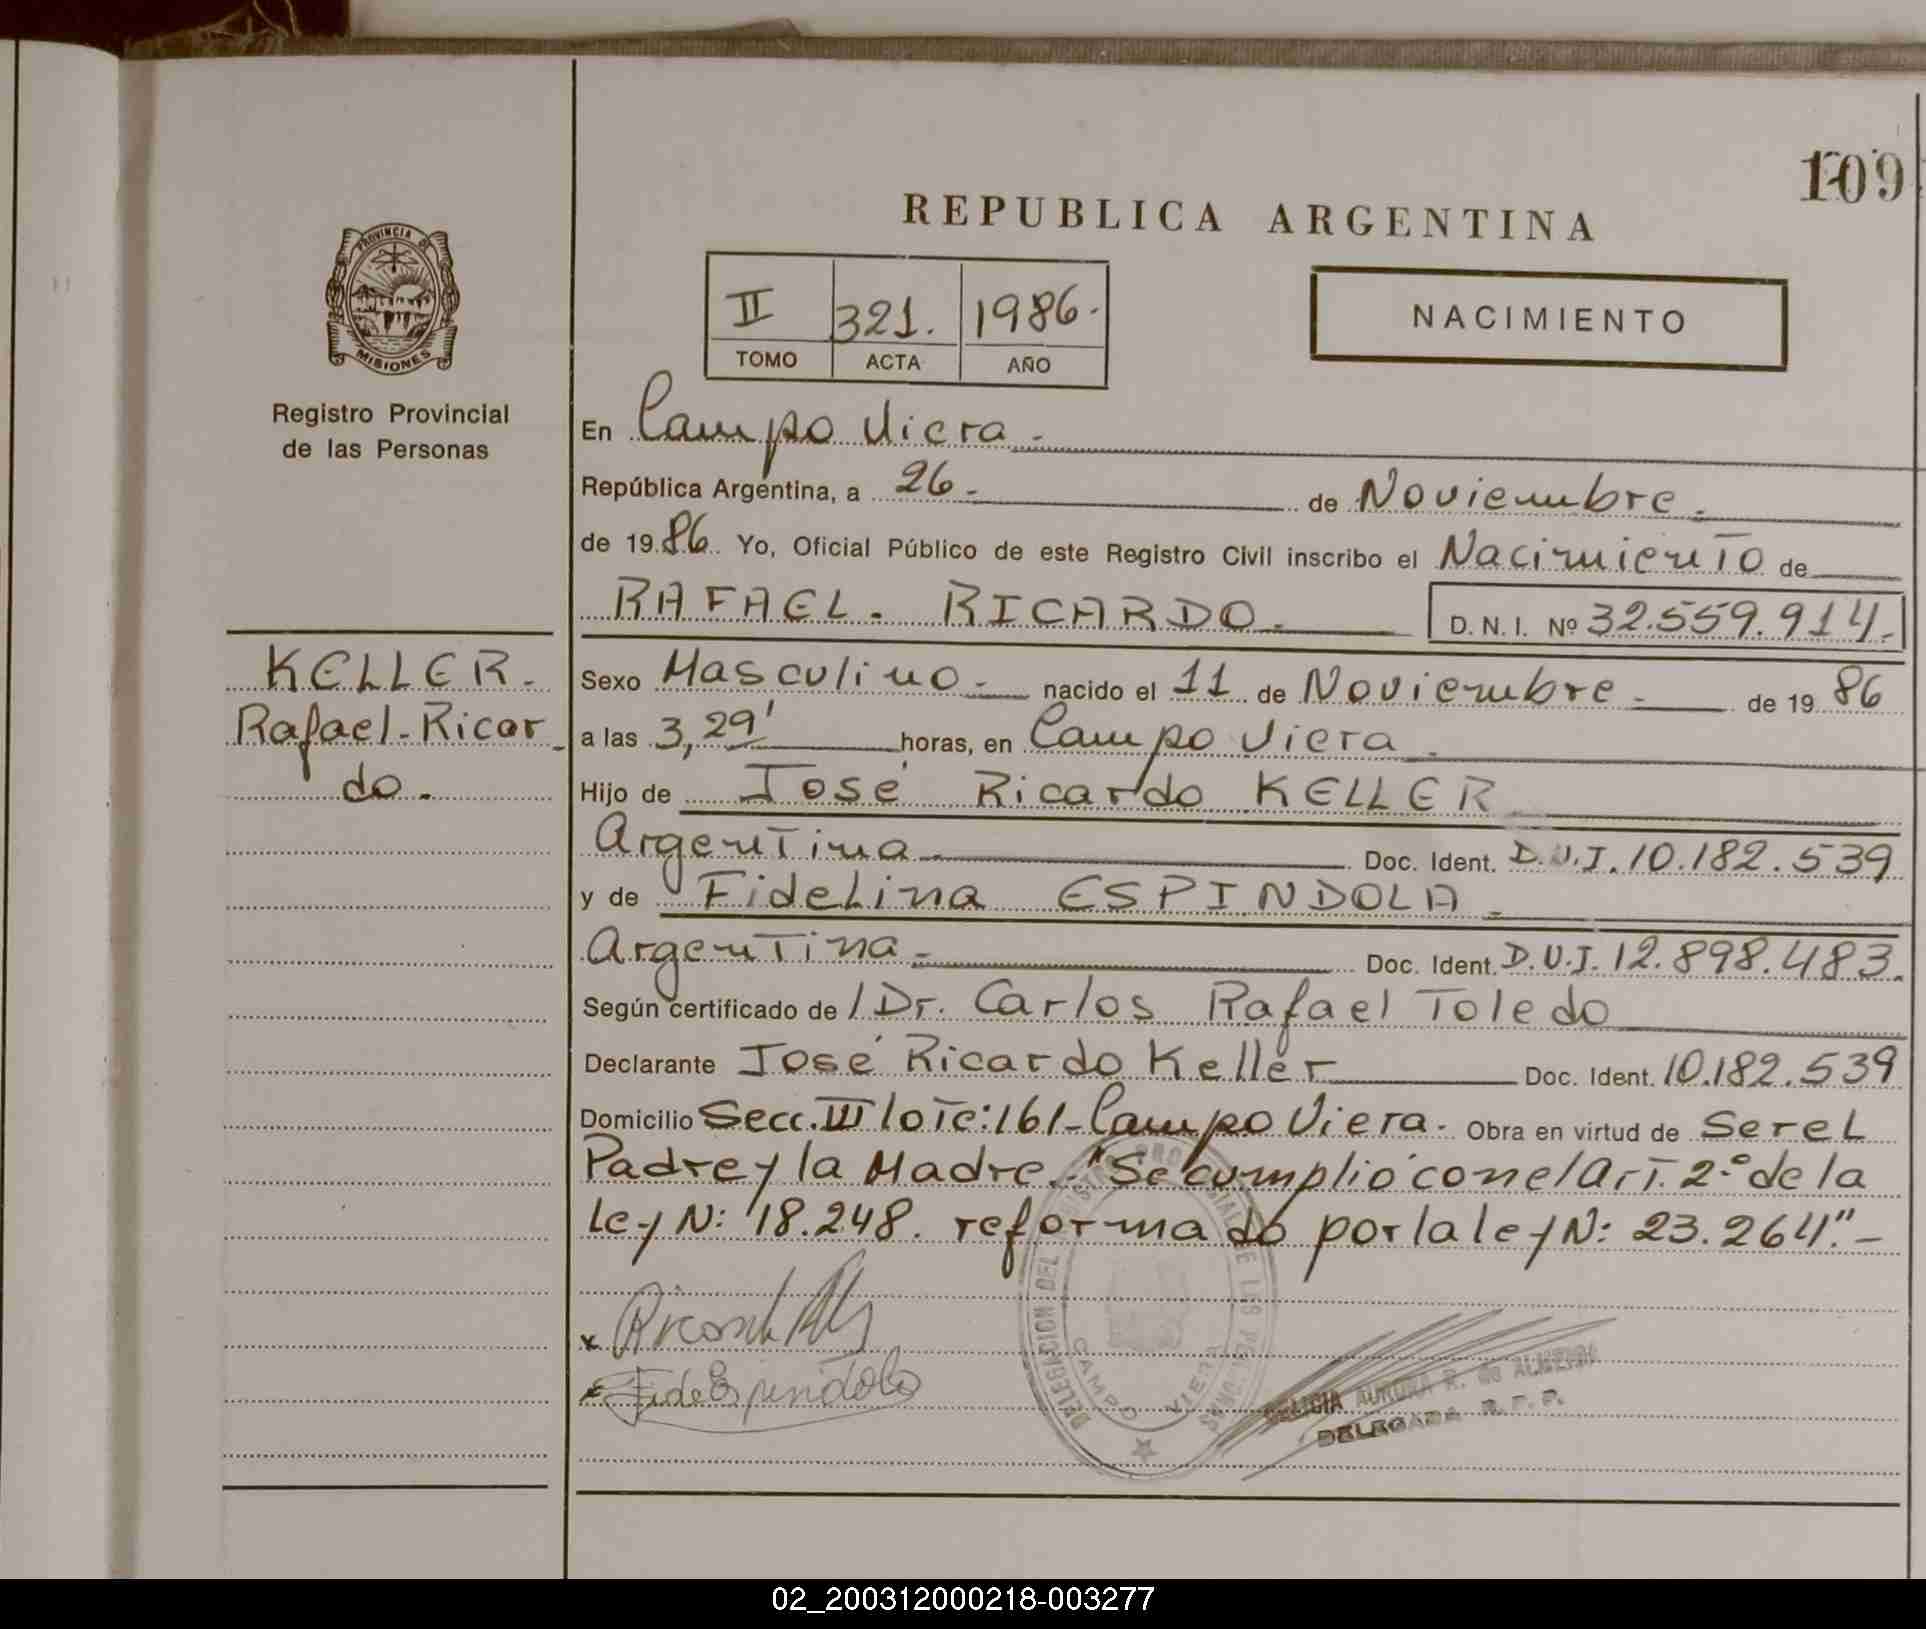 109
REPUBLICA ARGENTINA
PROVINCIA DE
MISIONES
II 321. 1986.-
TOMO ACTA AÑO
NACIMIENTO
Registro Provincial
de las Personas
En Campo Viera.-
República Argentina, a 26.- de Noviembre.-
de 1986 Yo, Oficial Público de este Registro Civil inscribo el Nacimiento de
RAFAEL. RICARDO.- D. N. I. Nº 32.559.914.-
KELLER.-
Rafael-Ricar-
do.-
Sexo Masculino.- nacido el 11 de Noviembre.- de 1986
a las 3,29' horas, en Campo Viera.
Hijo de José Ricardo KELLER
Argentina.- Doc. Ident. D.U.I. 10.182.539
y de Fidelina ESPINDOLA.-
Argentina.- Doc. Ident. D.U.I. 12.898.483.
Según certificado de / Dr. Carlos Rafael Toledo
Declarante José Ricardo Keller Doc. Ident. 10.182.539
Domicilio Secc. III lote: 161-Campo Viera. Obra en virtud de Ser el
Padre y la Madre.- "Se cumplió con el Art. 2º de la
ley N: 18.248. reformado por la ley N: 23.264".-
x
Fide Espindola
DELEGACION DEL REGISTRO PROVINCIAL DE LAS PERSONAS
CAMPO VIERA
AURORA R. de ALMEIDA
DELEGADA R. P. P.
02_200312000218-003277